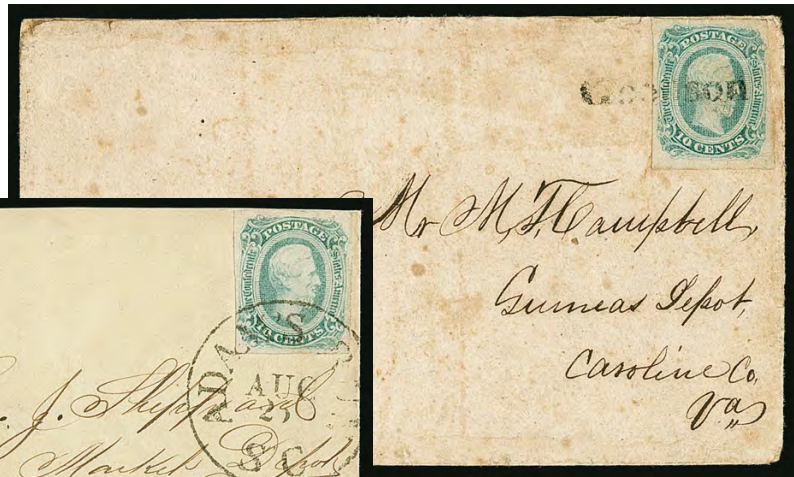 POSTAGE
The Confederate States America
10 CENTS
Mr M. T. Campbell,
Guineas Depot,
Caroline Co,
Va,,
POSTAGE
The Confederate States America
10 CENTS
ADA 'S
AUG
25
S C
J. Shippard
Markel Depot